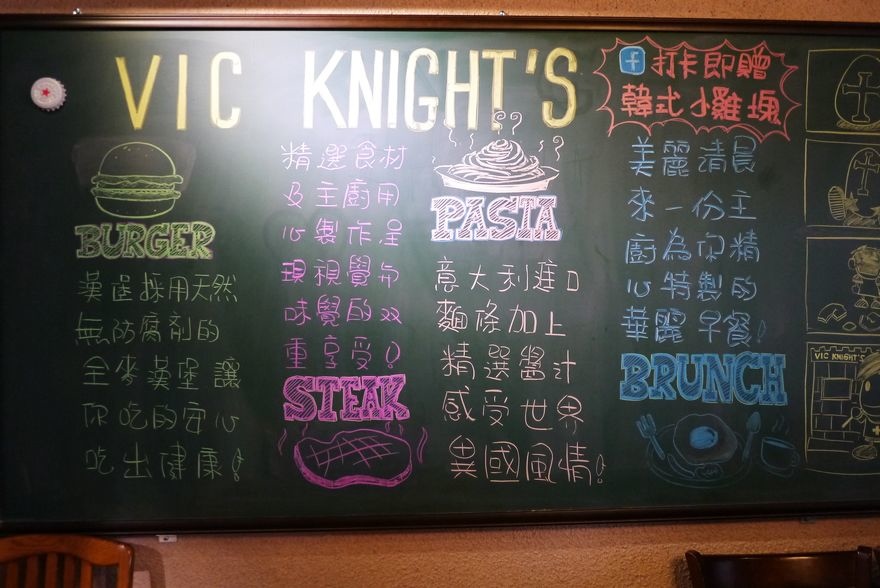 VIC KNIGHT'S
f 打卡即贈
韓式小雞塊
BURGER
漢堡採用天然
無防腐劑的
全麥漢堡讓
你吃的安心
吃出健康!
精選食材
及主廚用
心製作呈
現視覺和
味覺的双
重享受!
STEAK
PASTA
意大利進口
麵條加上
精選醬汁
感受世界
異國風情!
美麗清晨
來一份主
廚為你精
心特製的
華麗早餐!
BRUNCH
VIC KNIGHT'S